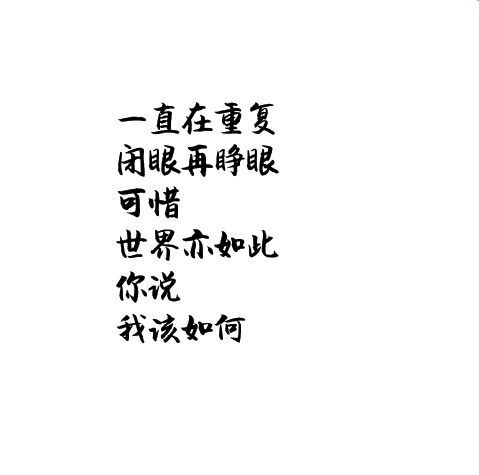 一直在重复
闭眼再睁眼
可惜
世界亦如此
你说
我该如何